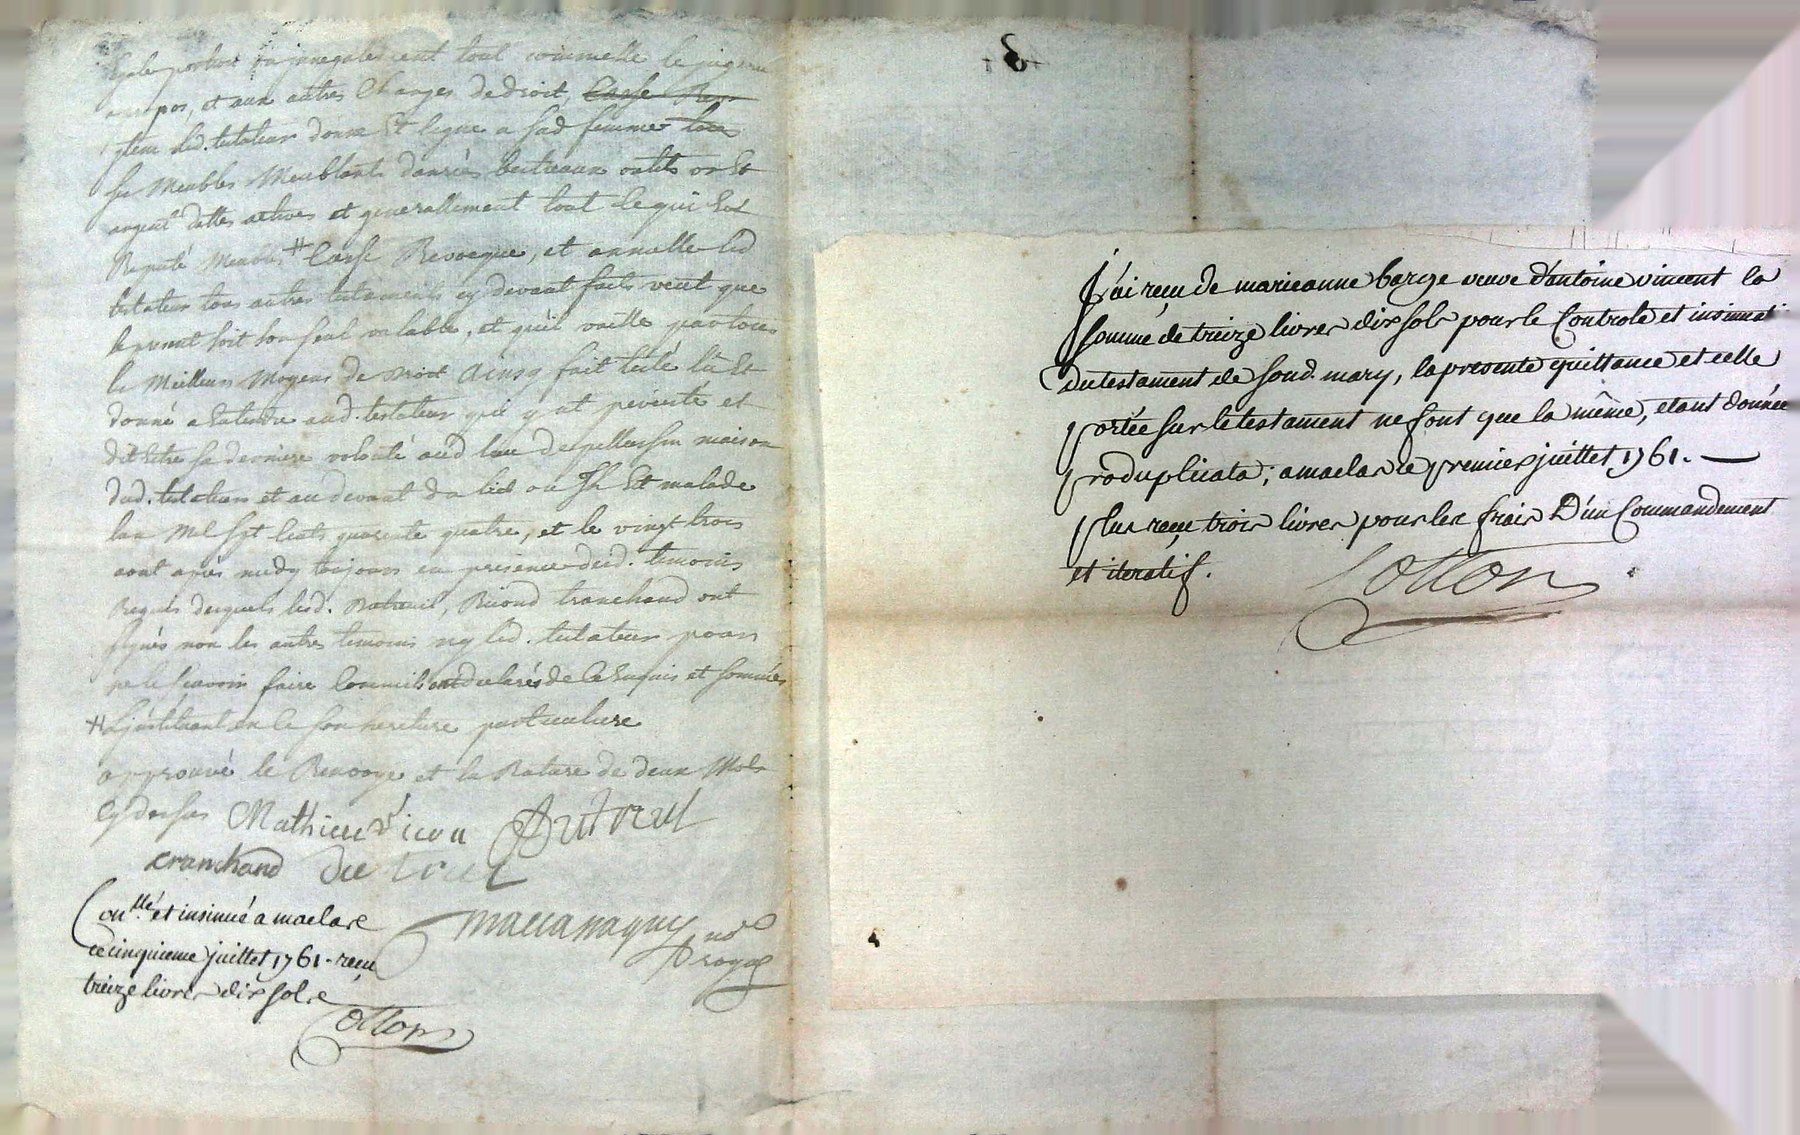 Egale portion ou inegalement tout comme elle le jugera
a propos, et aux autres Charges de droit, Casse Rev
Item led. testateur donne Et legue a sad femme tous
ses Meubles Meublants danrées bestieaux outils or Et
argent dettes actives et generallement tout ce qui Est
Reputé Meubles # Casse Revocque, et annulle led
testateur tous autres testaments cy devant faits veut que
le present soit son seul vallable, et qu'il vaille par tous
les Meilleurs Moyens de droit Ainsy fait testé lu Et
donné a Entendre aud. testateur qui y at persisté et
dit Estre sa derniere volonté aud lieu de maison
dud. testateur et au devant du lict ou Il Est malade
lan Mil sept cents quarente quatre, et le vingt trois
aout apres midy toujours en presence desd. temoins
Requis desquels lesd. Dutreuil, Ricond tranchand ont
signés non les autres temoins ny led. testateur pour
ne le scavoir faire comme ils ont declarés de ce Enquis et sommés
# l'jnstituant en ce son heritiere particuliere
approuvé le Renvoye et la Rature de deux Mots
cy dessus Mathieu ricou Dutreul
cranchand du treul
Con.llé et insinué a maclas ce
ce cinquieme juillet 1761 - reçu
treize livres dix sols.
Cotton
maccanaguy no.re
royal
J'ai reçu de marieanne barge veuve d'antoine vincent la
somme de treize livres dix sols pour le Controle et insinuat.
du testament de soud. mary, la presente quittance et celle
portée sur le testament ne font que la même, etant donnée
pro duplicata; a maclas ce premier juillet 1761. —
plus reçu trois livres pour les frais D'un Commandement
et iteratif.
Cotton